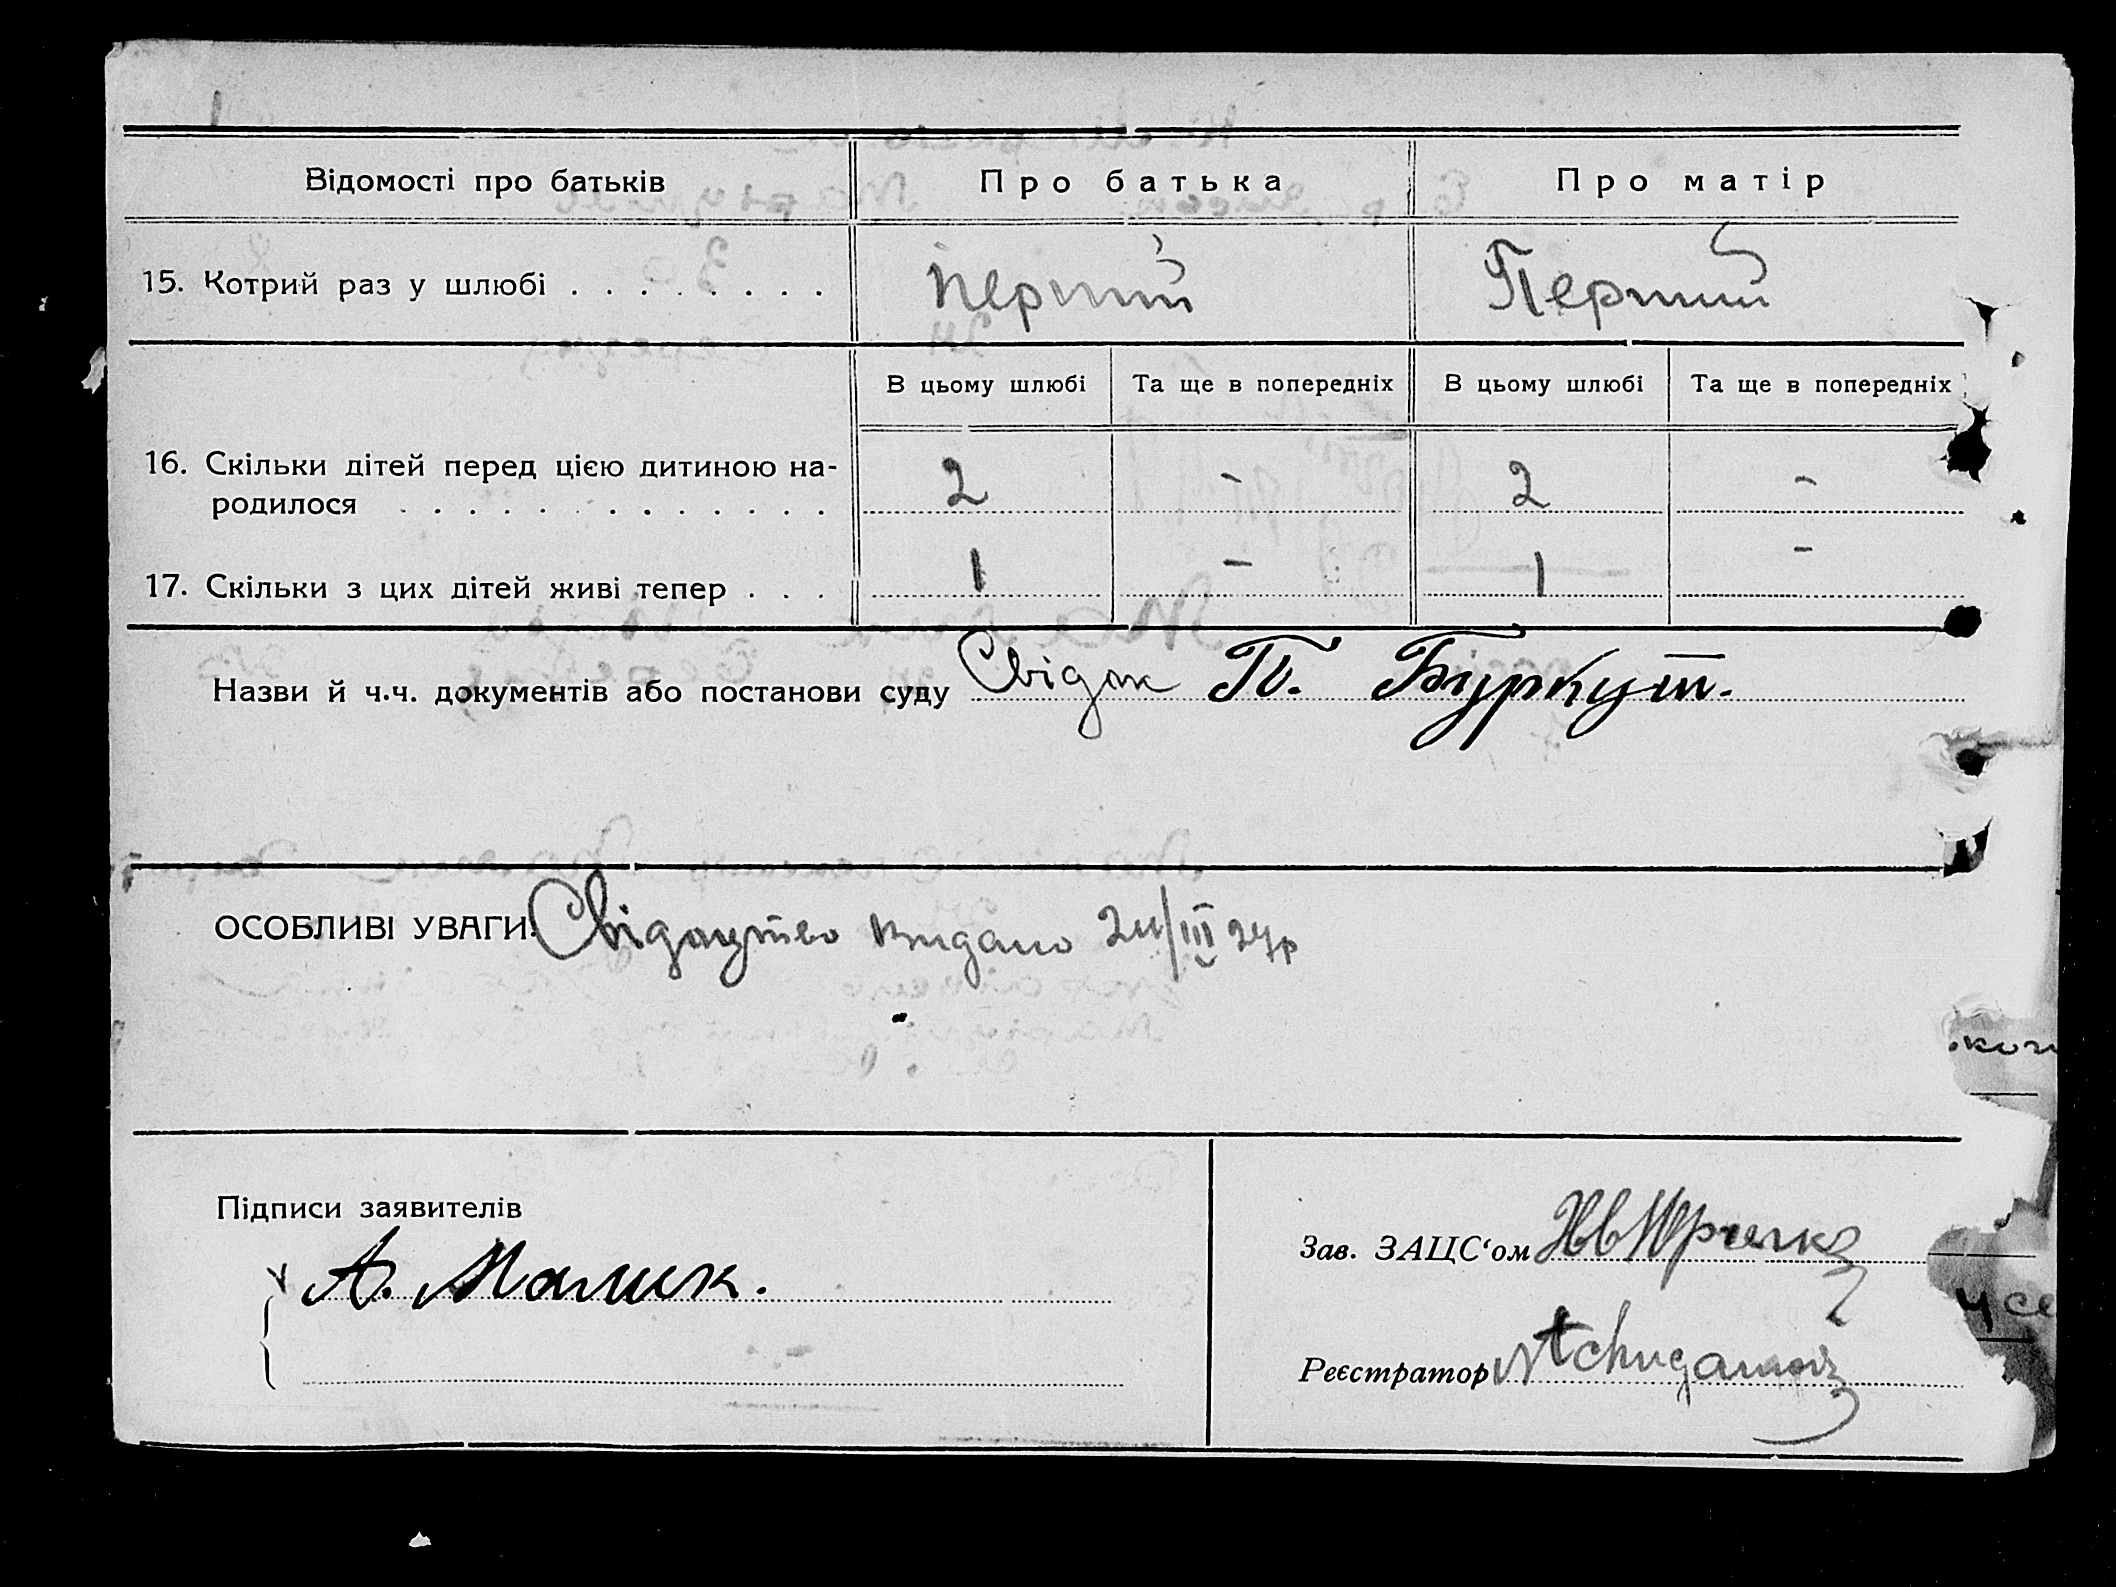 Відомості про батьків Про батька Про матір
15. Котрий раз у шлюбі . . . . . . . . Перший Перший
В цьому шлюбі Та ще в попередніх В цьому шлюбі Та ще в попередніх
16. Скільки дітей перед цією дитиною на-
родилося . . . . . . . . . . . . . 2 - 2 -
17. Скільки з цих дітей живі тепер . . . 1 - 1 -
Назви й ч.ч. документів або постанови суду Свідок П. Буркут.
ОСОБЛИВІ УВАГИ: Свідоцтво видано 24/III 24р
Підписи заявителів
А. Малик.
Зав. ЗАЦС‘ом
Реєстратор